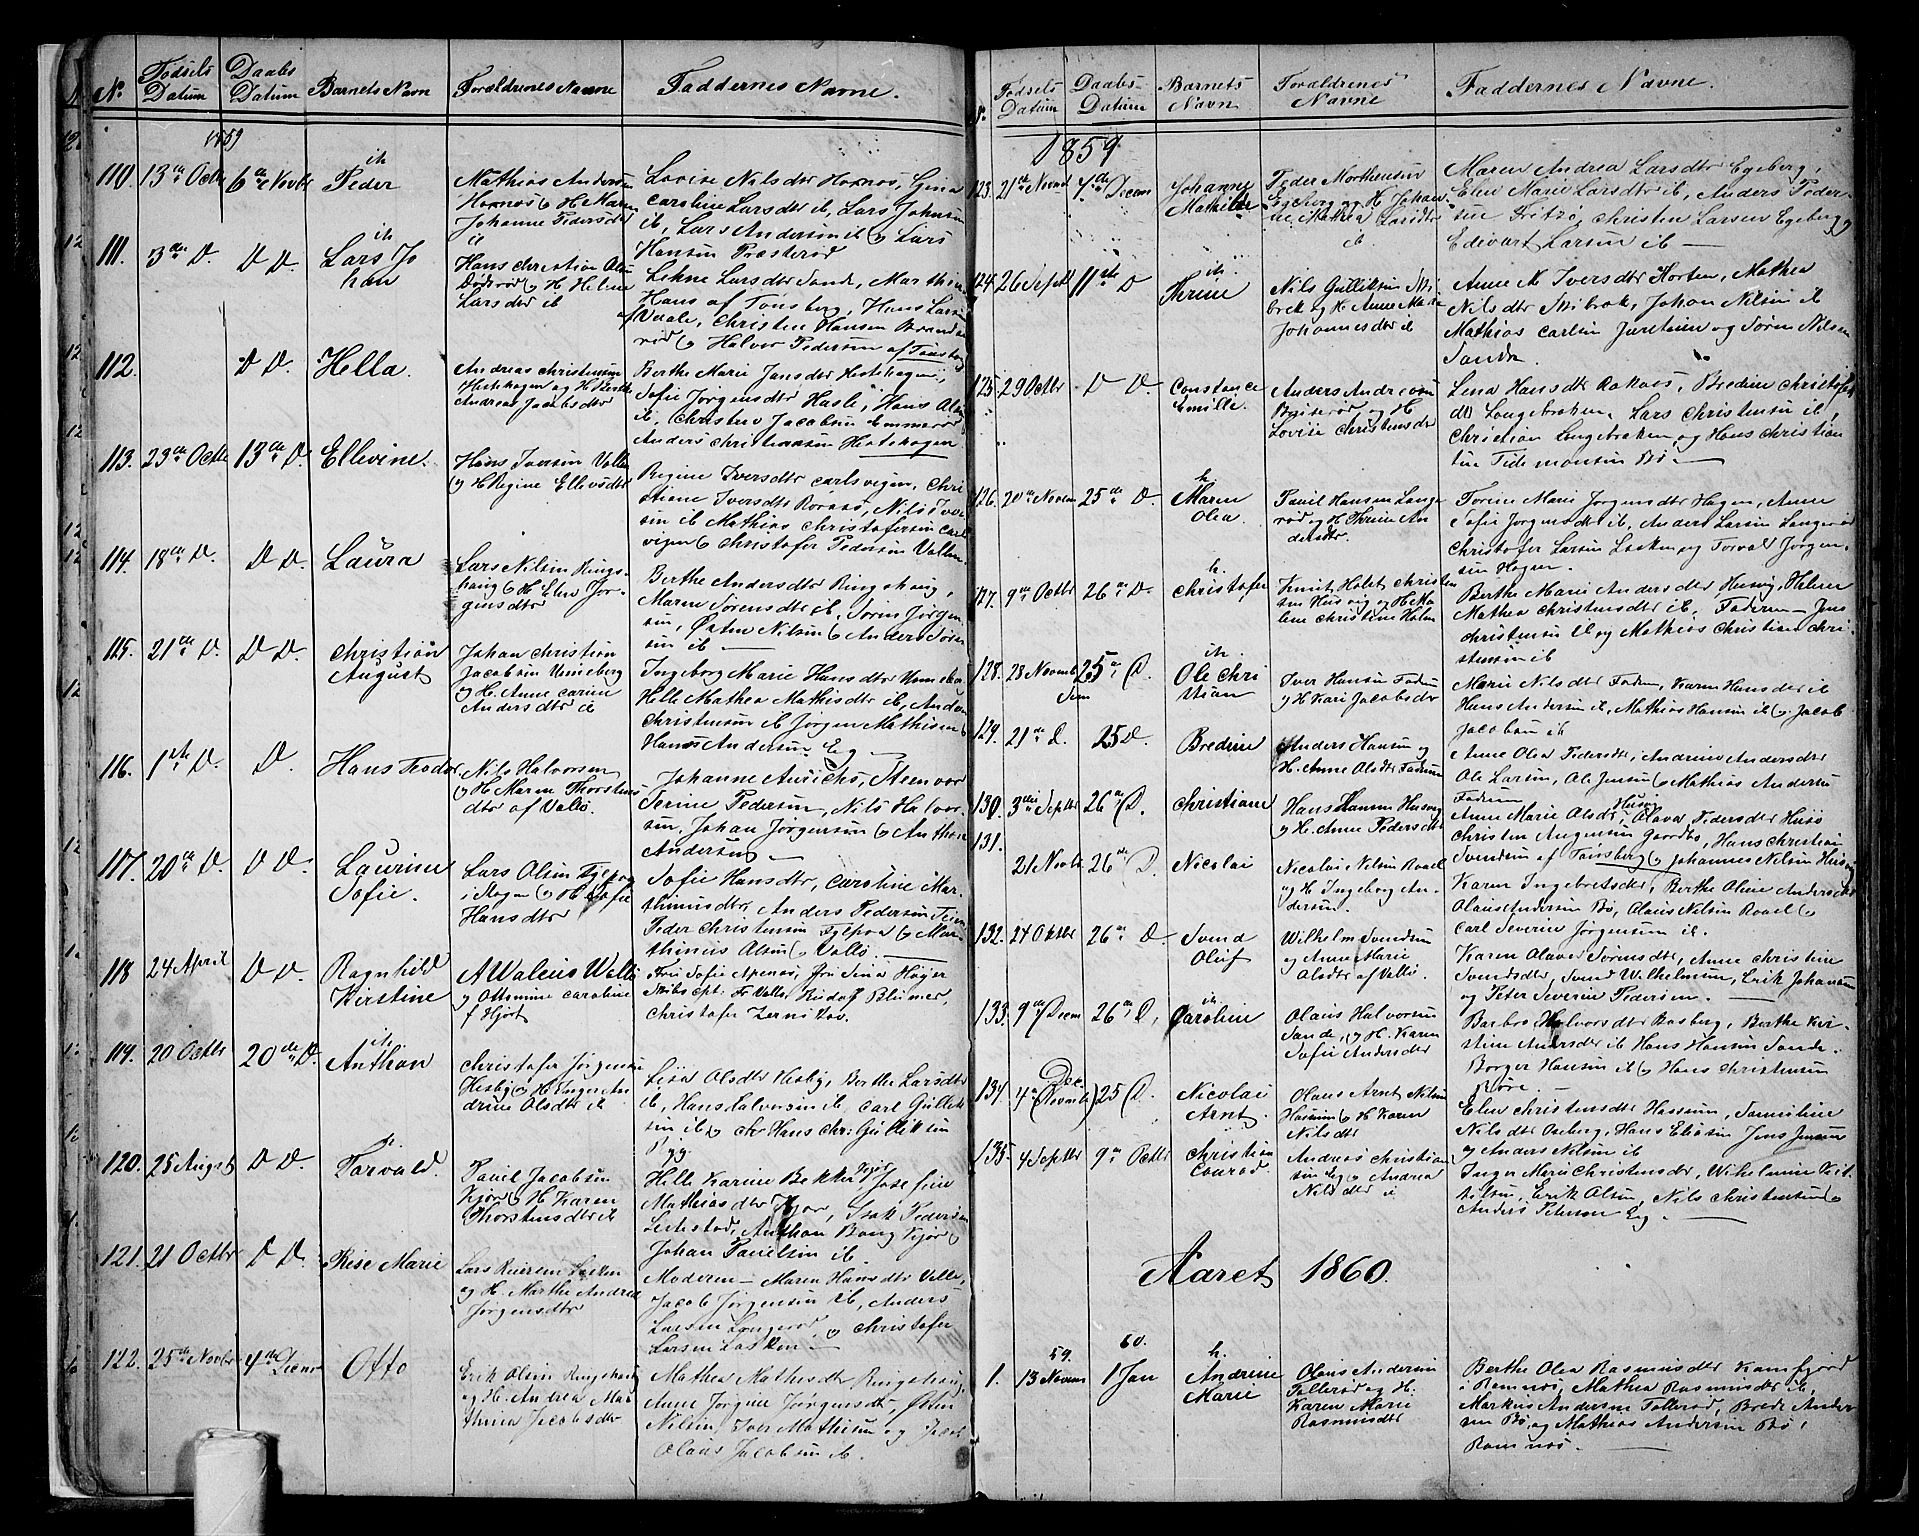 No. Fødsels Datum Daabs Datum Barnets Navn Forældrenes Navne Faddernes Navne.
1859
110. 13de Octbr 6te Novbr Peder
Mathias Andersen
Hornæs og H. Maren
Johanne Pedersdtr
ib
Lovise Nilsdtr Hornæs, Gina
Caroline Larsdtr ib, Lars Johnsen
ib, Lars Andersen ib og Lars
Hansen Præsterød
111. 3de D. D D. Lars Jo
han
Hans Christian Olsen
og H. Helene
Larsdtr ib
Lehne Larsdtr Sande, Marthin
Hans af Tønsberg, Hans Larsen
af Vaale, Christen Hansen
rød og Halvor Pedersen af Tønsberg
112. D D. Hella.
Andreas Christensen
Hestehagen og H.
Andrea Jacobsdtr
Berthe Marie Jansdtr Hestehagen,
Sofie Jørgensdtr Hasle, Hans Olsen
ib, Christen Jacobsen
Anders Christiansen Hestehagen.
113. 23de Octbr 13de D. Ellevine.
Hans Iversen Valle
og H Regine Ellevsdtr
Regine Iversdtr Carlsvigen, Chri
stiane Iversdtr Roraas, Nils Iver
sen ib Mathias Christofersen Carls
vigen og Christofer Pedersen Vallø
114. 18de D. D D. Laura
Lars Nilsen Rings
haug og H. Elen Jør
gensdtr
Berthe Andersdtr Ringshaug,
Maren Sørensdtr ib, Søren Jørgen
sen, Østen Nilsen og Anders Søren
sen ib
115. 21de D. D D. Christian
August
Johan Christian
Jacobsen Unneberg
og H. Anne Carine
Andersdtr ib
Ingeborg Marie Hansdtr Unneberg
Helle Mathea Mathisdtr ib, Anders
Christensen ib Jørgen Mathisen og
Hans Andersen Eg
116. 1ste D. D. Hans Teodor
Nils Halvorsen
og H. Maren Thorstens
dtr af Vallø.
Johanne
Terine Pedersen, Nils Halvor
sen, Johan Jørgensen og Anthon
Andersen
117. 20de D. D D. Laurine
Sofie.
Lars Olsen
i Skogen og H Sofie
Hansdtr
Sofie Hansdtr, Caroline Mar
thinusdtr, Anders Pedersen
Peder Christensen og Mar
thinius Olsen Vallø.
118 24 April D D. Ragnhild
Kirstine
A Walеus Vallø
og Ottomine Caroline
f Hjort
Fru Sofie Apenæs, Frk Sina Høyer
Skibscpt: Fr Valle, Rudolf Blumer,
Christofer
119. 20 Octbr 20de D. Anthon
Christofer Jørgensen
Hesby og H Inger An
drine Olsdtr ib
Lisa Olsdtr Hesby, Berthe Larsdtr
ib, Hans Halvorsen ib, Carl Gullik
sen ib og Hans Chr: Gulliksen
120. 25 Augst D D. Torvald
Paul Jacobsen
Kjær og H Karen
Thorstensdtr ib
Helle Karine Bekker Josefine
Mathiasdtr Kjær, Isak Pedersen
Anthon Bang Kjær og
Johan Paulsen ib
121. 21 Octbr D D. Rise Marie
Lars Lasken
og H. Marthe Andrea
Jørgensdtr
Moderen — Maren Hansdtr Valle,
Jacob Jørgensen ib, Anders
Larsen Langerød, og Christofer
Larsen Lasken.
122. 25de Novbr 4de Decmr Otto
Erik Olsen Ringshaug
og H. Andrea Ma
thea Jacobsdtr
Mathea Mathisdtr Ringshaug,
Anne Jørgine Jørgensdtr, Østen
Nilsen, Iver Mathisen og Jacob
Olaus Jacobsen ib.
No. Fødsels Datum Daabs-Datum Barnets Navn Forældrenes Navne Faddernes Navne.
1859
123. 21de Novmb 4de Decem Johanne
Mathilde
Peder Morthensen
Egeberg og H Johan
ne Mathea Larsdtr
ib
Maren Andrea Larsdtr Egeberg,
Elen Marie Larsdtr ib, Anders Peder
sen Fritzø, Christen Larsen Egeberg og
Edevart Larsen ib —
124. 26 Septbr 11te D Therine
Nils Gulliksen
brek og H Anne Marie
Johannesdtr ib
Anne M Iversdtr Horten, Mathea
Nilsdtr Johan Nilsen ib
Mathias Carlsen og Søren Nilsen
Sande.
125. 29 Octbr D D. Constance
Emilie.
Anders Andreasen
og H.
Lovise Christensdtr
Lena Hansdtr Bredine Christofers
dtr Langebraken, Lars Christensen ib,
Christian Langebraken og Hans Christian
sen Tidemansen Bø. —
126. 20de Novem 25de D. Maren
Olea.
Paul Hansen Lange
rød og H Therine An
dersdtr.
Torine Marie Jørgensdtr Hagen, Anne
Sofie Jørgensdtr ib, Anders Larsen Langerød
Christofer Larsen Lasken og Torval Jørgen
sen Hagen.
127. 9de Octbr 26de D. Christofer
Knut Holst Christen
sen Husvig og H Ma
lene Christine Holm
Berthe Marie Andersdtr Husvig, Helene
Mathea Christensdtr ib, Faderen — Jens
Christensen ib og Mathias Christian Chri
stensen ib
128. 28 Novmb 25de D. Ole Chri
stian
Iver Hansen Fadum
og H Kari Jacobsdr
Marie Nilsdtr Fadum, Karen Hansdtr ib
Hans Andersen ib, Mathias Hansen ib og Jacob
Jacobsen ib
Dem
129. 21de D. 25 D. Bredine
Anders Hansen og
H. Anne Olsdtr Fadum
Anne Olea Pedersdtr, Andrine Andersdtr
Ole Larsen, Ole Jensen og Mathias Andersen
Fadum
130. 3die Septbr 26de D. Christiane
Hans Hansen Husvig
og H. Anne Pedersdtr
Anne Marie Olsdtr Husvig, Olava Pedersdtr Husø
Christen Augensen Gaardbo, Hans Christian
Svendsen af Tønsberg og Johannes Nilsen Husvig
131. 21 Novbr 26de D. Nicolai
Nicolai Nilsen Rael
og H Ingeborg An
dersen.
Karen Ingebretsdtr, Berthe Oline Andersdtr
Olaus Andersen Bø, Olaus Nilsen Rael og
Carl Severin Jørgensen ib.
132. 24 Oktbr 26de D. Svend
Oluf
Wilhelm Svendsen
og Anne Marie
Olsdtr af Vallø.
Karen Olava Sørensdtr, Anne Christine
Svendsdtr, Svend Wilhelmsen, Erik Johansen
og Peter Severin Pedersen.
133. 9de Decm 26de D. Caroline
Olaus Halvorsen
Sande, og H. Karen
Sofie Andersdtr
Barbro Halvorsdtr Basberg, Berthe Kir
stine Andersdtr ib Hans Hansen Sande.
Borger Hansen ib og Hans Christensen
Børre. —
134 4de Dec. (Novmb) 25 D. Nicolai
Arnt.
Olaus Arnt Nilsen
Hassum og H Karen
Nilsdtr
Elen Christensdtr Hassum, Samuline
Nilsdtr Oseberg, Hans Eliasen Jens Jensen
og Anders Nilsen ib
135. 4 Septbr 9de Octbr Christian
Conrad.
Andreas Christian
sen Eg og Andrea
Nilsdtr ib
Inger Marie Christensdtr, Wilhelmine Kit
tilsen, Erik Olsen, Nils Christensen og
Anders Petersen Eg —
Aaret 1860.
59. 60.
1. 13 Novem 1 Jan Andrine
Marie
Olaus Andersen
Tollerød og H.
Karen Marie
Rasmusdtr
Berthe Olea Rasmusdtr Kamfjord
i Ramnæs, Mathea Rasmusdtr ib,
Markus Andersen Tollerød, Brede Ander
sen Bø, og Mathias Andersen Bø i
Ramnæs. —